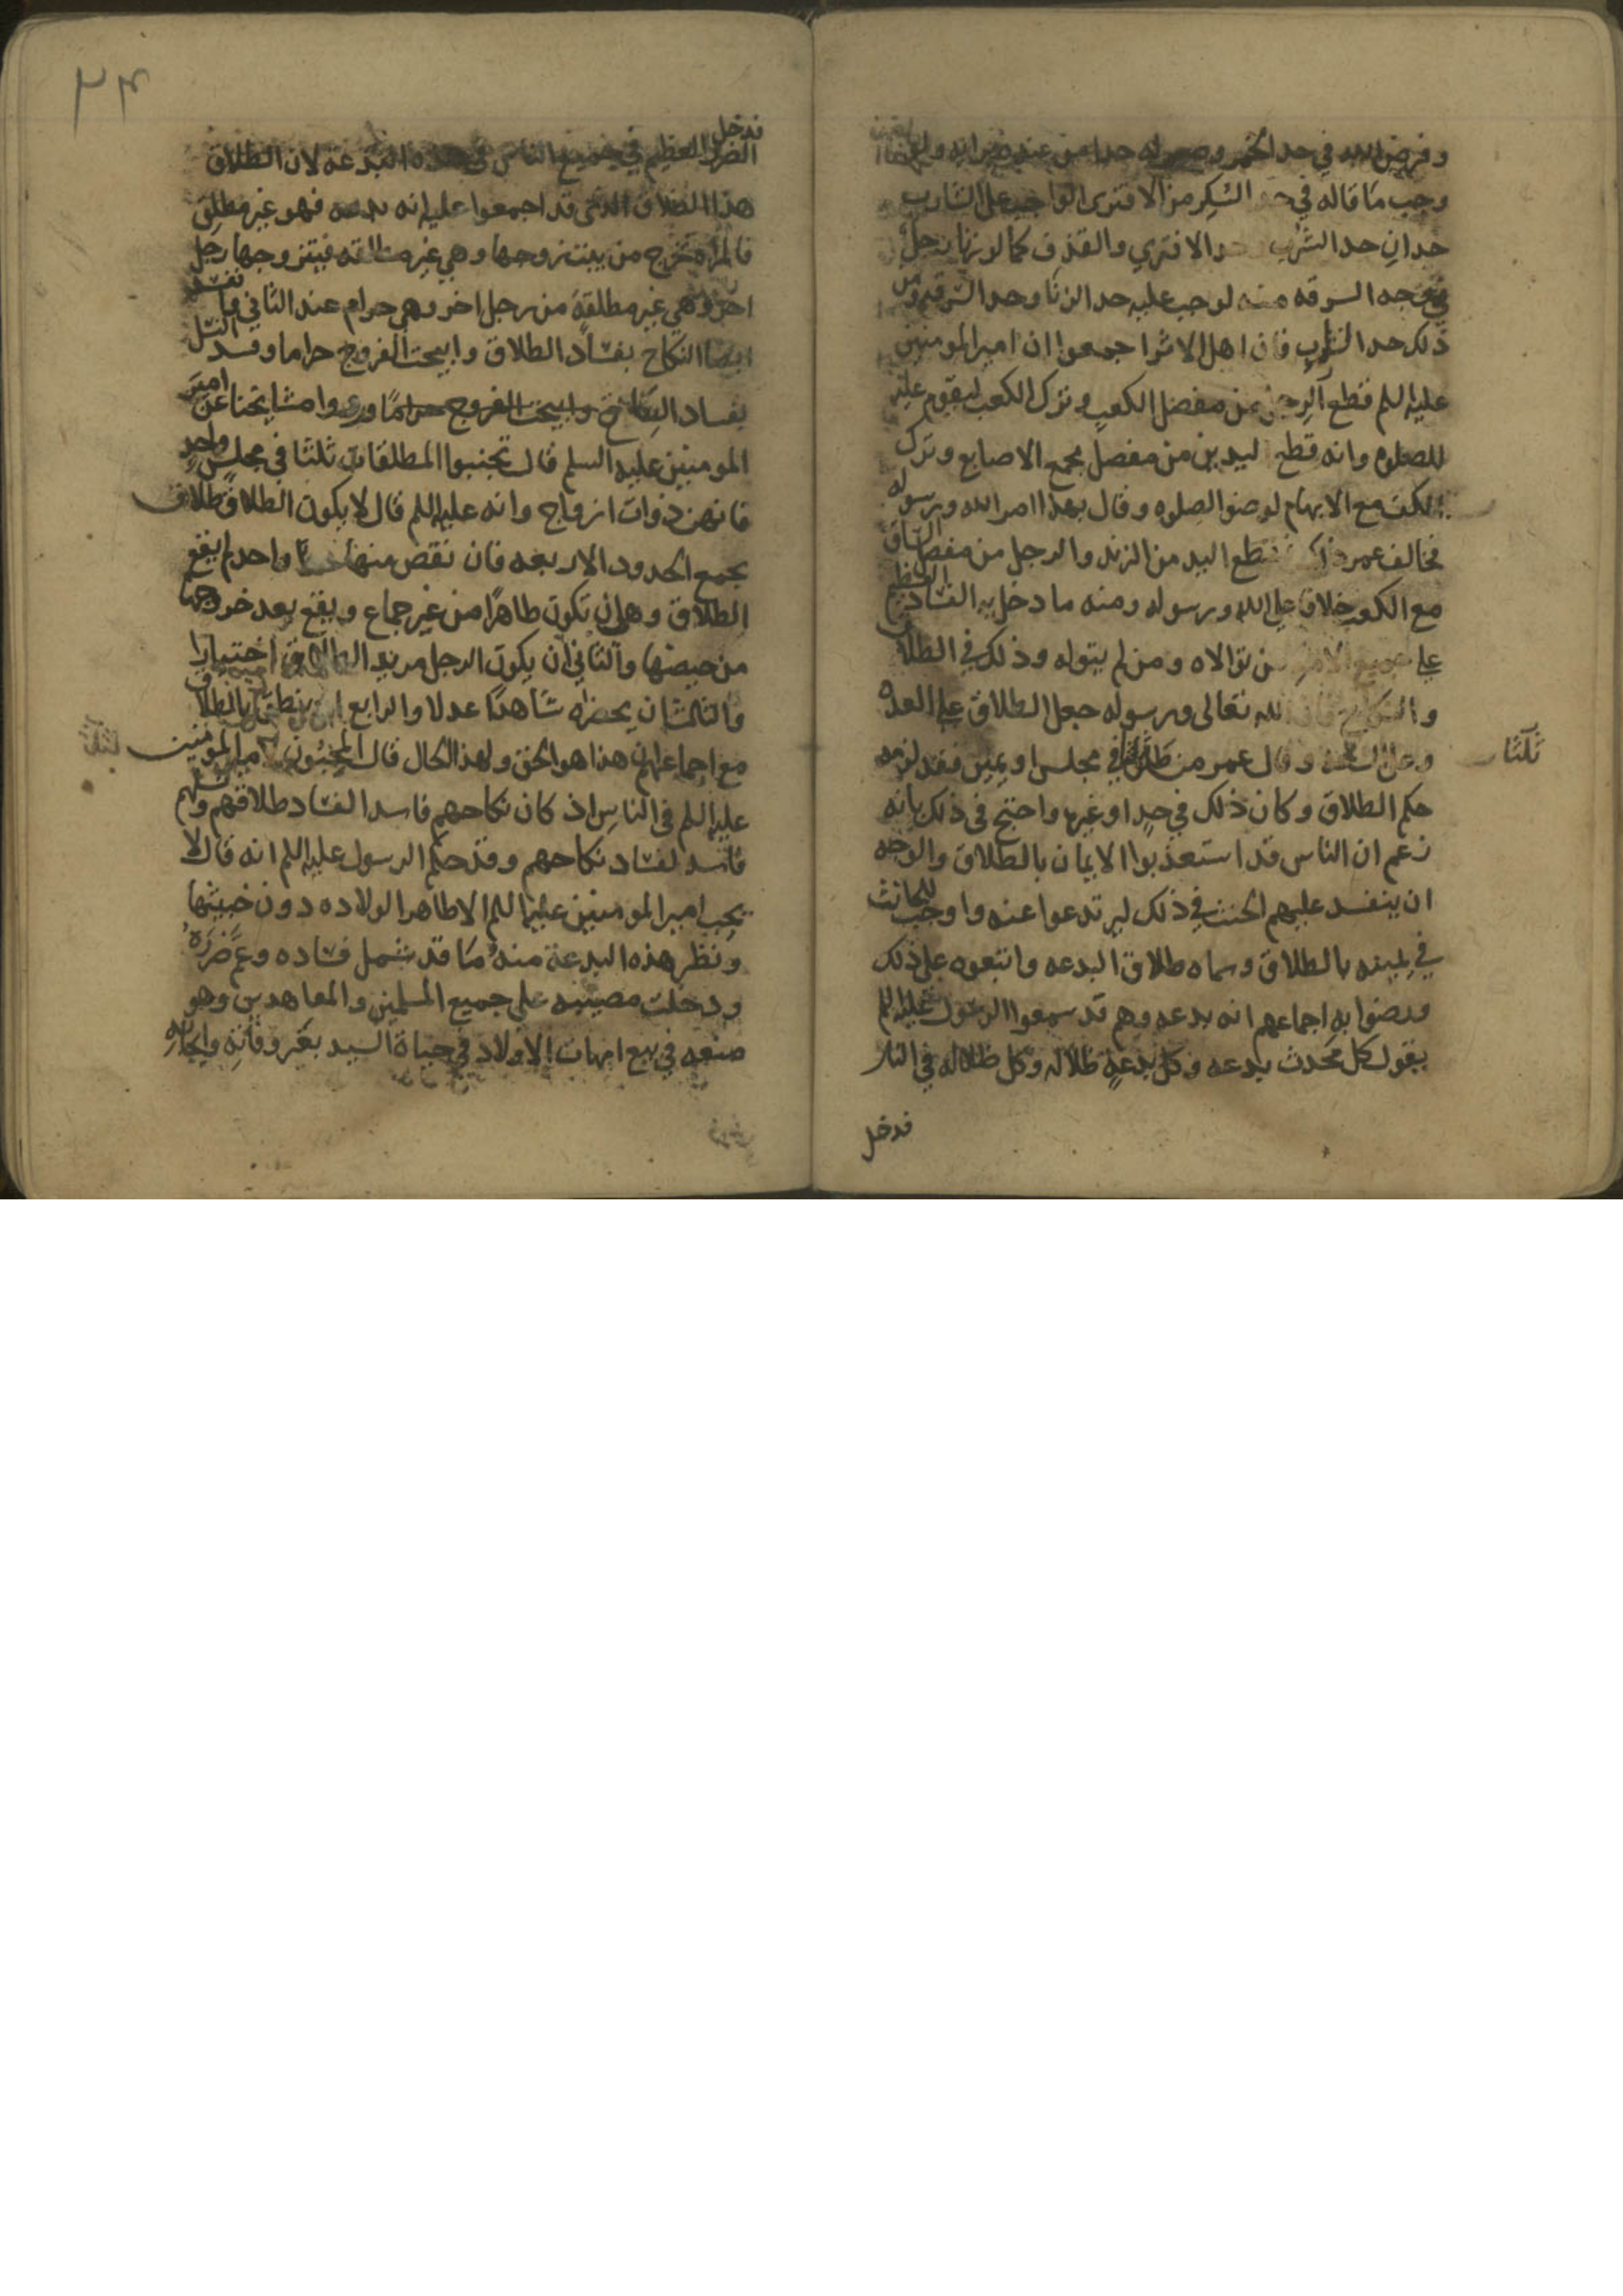 وفرض الله في حد الخمر وصير له حدا من عنده
وجب ما قاله في السكر من الافترى الواجب على الشارب
حدان حد الشرب والافتري والقذف كما لو زنا رجل
السرقه منه لوجب عليه حد الزنا وحد السرقه
ذلك حد الشارب فان اهل الاثر اجمعوا ان امير المومنين
عليه السلم قطع الرجل من مفصل الكعب وترك الكعب ليقوم عليه
للصلوه وانه قطع اليدين من مفصل مجمع الاصابع وترك
الكف مع الابهام لوضو الصلوه وقال بهذا امر الله ورسوله
فخالف عمر قطع اليد من الزند والرجل من مفصل الساق
مع الكعب خلافا على الله ورسوله ومنه ما دخل به الفساد العظيم
على جميع من توالاه ومن لم يتوله وذلك في الطلاق
والنكاح فان الله تعالى ورسوله جعل الطلاق على العده
وعلى السنه وقال عمر من طلق في مجلس او يمين فقد لزمه
ثلثا
حكم الطلاق وكان ذلك في حد او غيره واحتج في ذلك بانه
زعم ان الناس قد استعذبوا الايمان بالطلاق والوجه
ان ينفسد عليهم الحنث في ذلك ليرتدعوا عنه واوجب للحانث
في يمينه بالطلاق وسماه طلاق البدعه واتبعوه على ذلك
ورضوا به اجماعهم انه بدعه وهم قد سمعوا الرسول عليه السلم
يقول كل محدث بدعه وكل بدعة ظلاله وكل ظلاله في النار
فدخل
٢٤
فدخل
الضرر العظيم في جميع الناس في هذه البدعة لان الطلاق
هذا الطلاق الذي قد اجمعوا عليه انه بدعه فهو غير مطلق
فالمراه تخرج من بيت زوجها وهي غير مطلقه فيتزوجها رجل
اخر وهي غير مطلقة من رجل اخر وهي حرام عند الثاني
ايضا النكاح بفساد الطلاق وابيحت الفروج حراما وفسد النسل
بفساد النكاح وابيحت الفروج حراما وروا مشايخنا عن امير
المومنين عليه السلم قال تجنبوا المطلقات ثلثا في مجلس واحد
فانهن ذوات ازواج وانه عليه السلم قال لا يكون الطلاق طلاق
يجمع الحدود الاربعه فان نقص منها واحد لم يقع
الطلاق وهي ان تكون طاهرا من غير جماع ويقع بعد خروجها
من حيضها والثاني ان يكون الرجل مريد الطلاق اختيارا
والثالث ان يحضره شاهدا عدلا والرابع ان ينطق بالطلاق
مع اجماعهم ان هذا هو الحق ولهذا الحال قال المحبون لامير المومنين
عليه السلم في الناس اذ كان نكاحهم فاسد الفساد طلاقهم ونسلهم
فاسد لفساد نكاحهم وقد حكم الرسول عليه السلم انه قال لا
يحب امير المومنين عليه السلم الا طاهر الولاده دون خبيثها
ونظر هذه البدعة منه ما قد شمل فساده وعم ضرره
ودخلت مصيبته على جميع المسلمين والمعاهدين وهو
صنعه في بيع امهات الاولاد في حياة السيد بعد وفاته